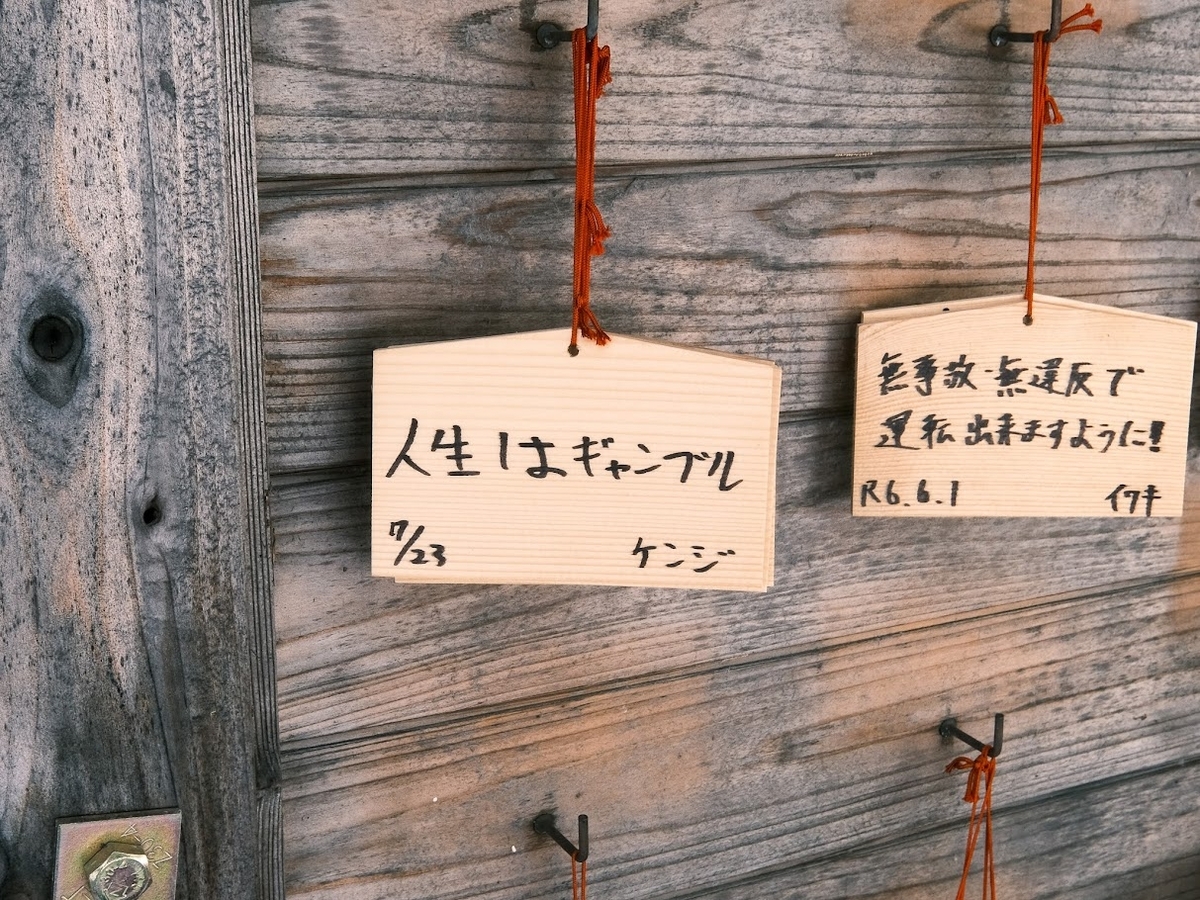 人生はギャンブル
7/23 ケンジ
無事故・無違反で
運転出来ますように!!
R6.6.1 イワキ